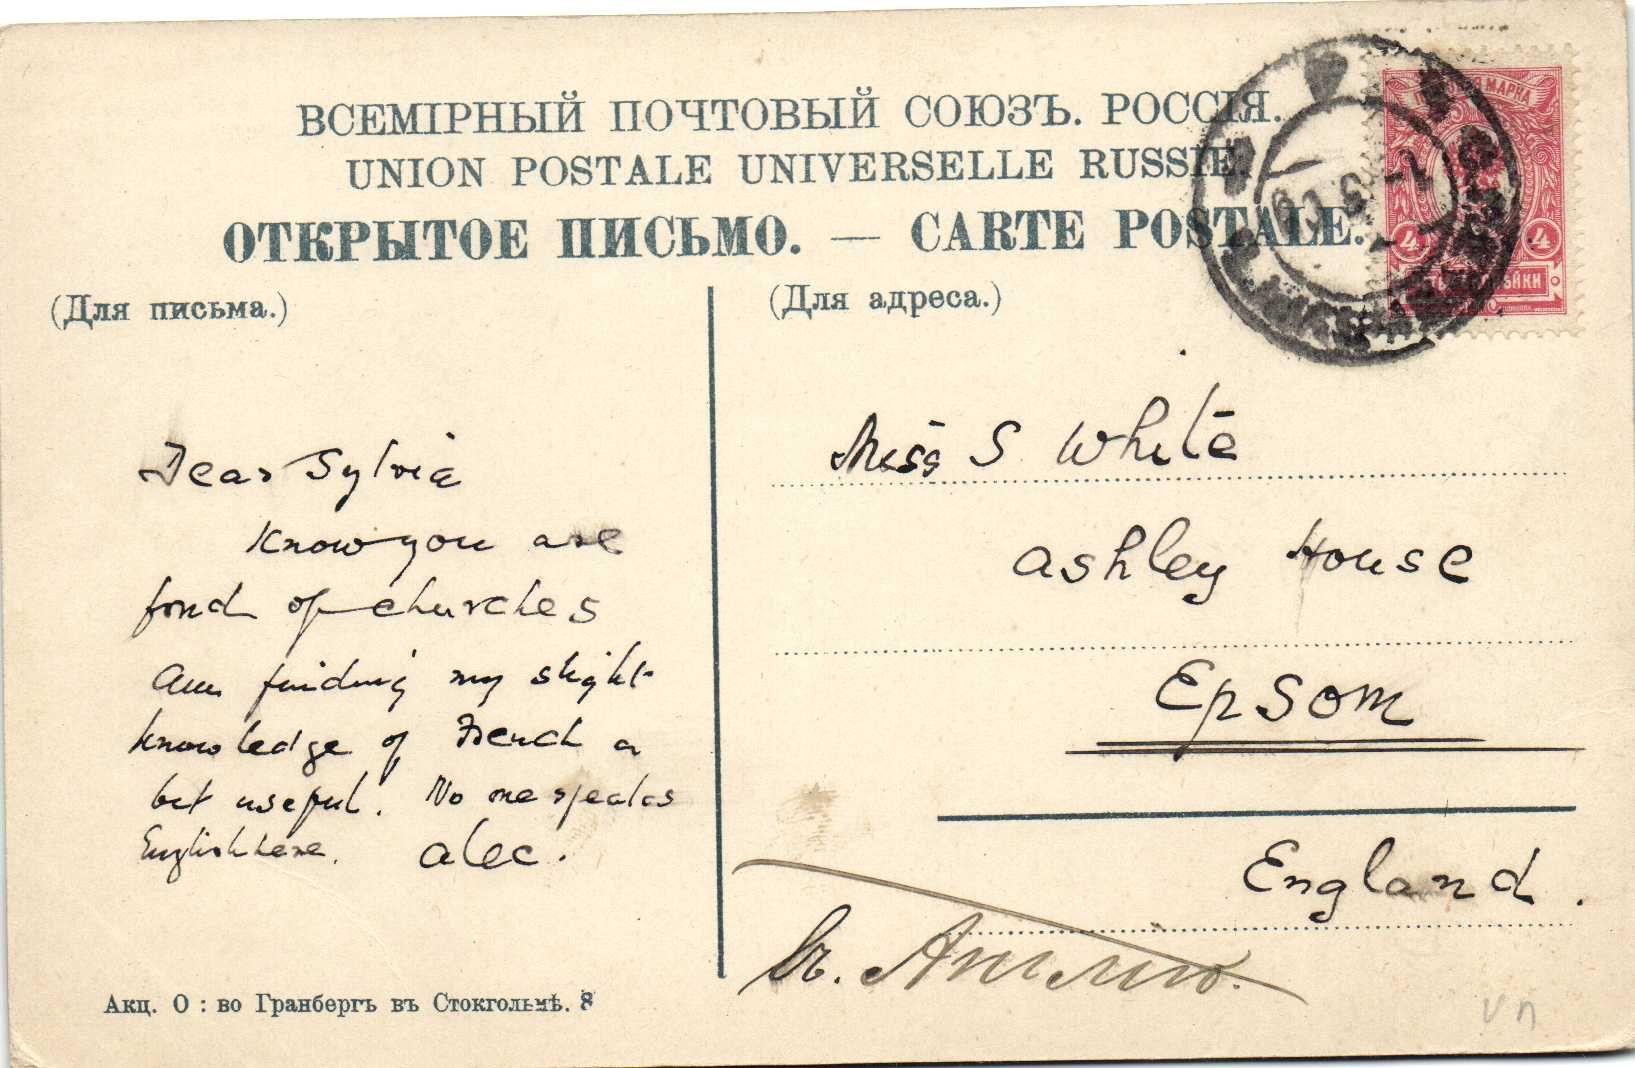 ВСЕМІРНЫЙ ПОЧТОВЫЙ СОЮЗЪ. РОССІЯ.
UNION POSTALE UNIVERSELLE RUSSIE.
ОТКРЫТОЕ ПИСЬМО. — CARTE POSTALE.
(Для письма.)
Dear Sylvia
Know you are
fond of churches
Am finding my slight
knowledge of French a
bit useful. No one speaks
English here. Alec.
Акц. О: во Гранбергъ въ Стокгольмѣ. 8
(Для адреса.)
МАРКА
4 4
Miss S White
Ashley House
Epsom
England.
въ. Англію.